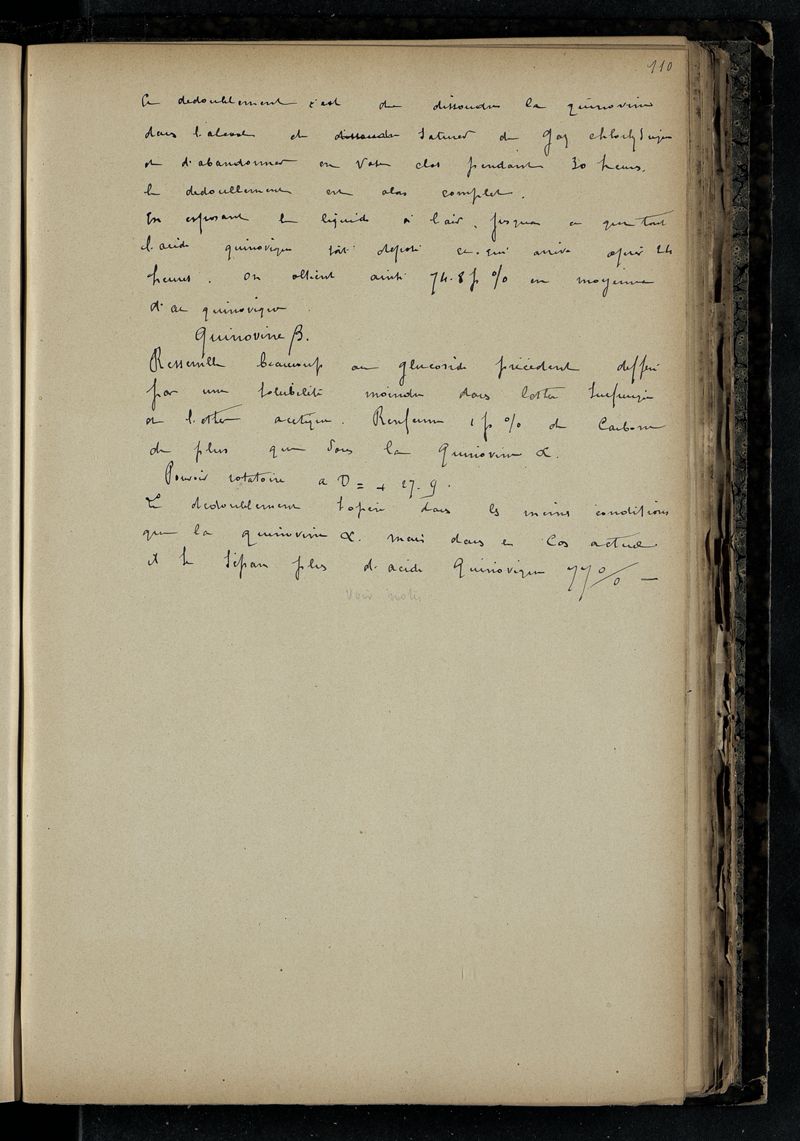 110
Ce dedoublement c'est de dissoudre la quinovine
dans l'alcool et dissoudre saturer de Gaz chlorhydrique
et d'abandonner en Vase clos pendant 30 heures.
le dedoublement est alors complet.
En exposant le liquide à l'air, jusqua ce que tout
l'acide quinovique soit deposé ce qui arrive après 24
heures. On obtient ainsi 74.8 p % en moyenne
d'ac quinovique
Quinovine β.
Ressemble beaucoup au glucoside précedent differe
par une solubilité moindre dans l'ether
et l'ether acetique. Renferme 1 p % de Carbone
de plus que dans la Quinovine α.
Pouvoir rotatoire a D = + 27.9.
Le dedoublement s'opère dans les memes conditions
que la quinovine α. mais dans ce Cas actuel
il se sépare plus d'acide Quinovique 77 % —
Voir notes